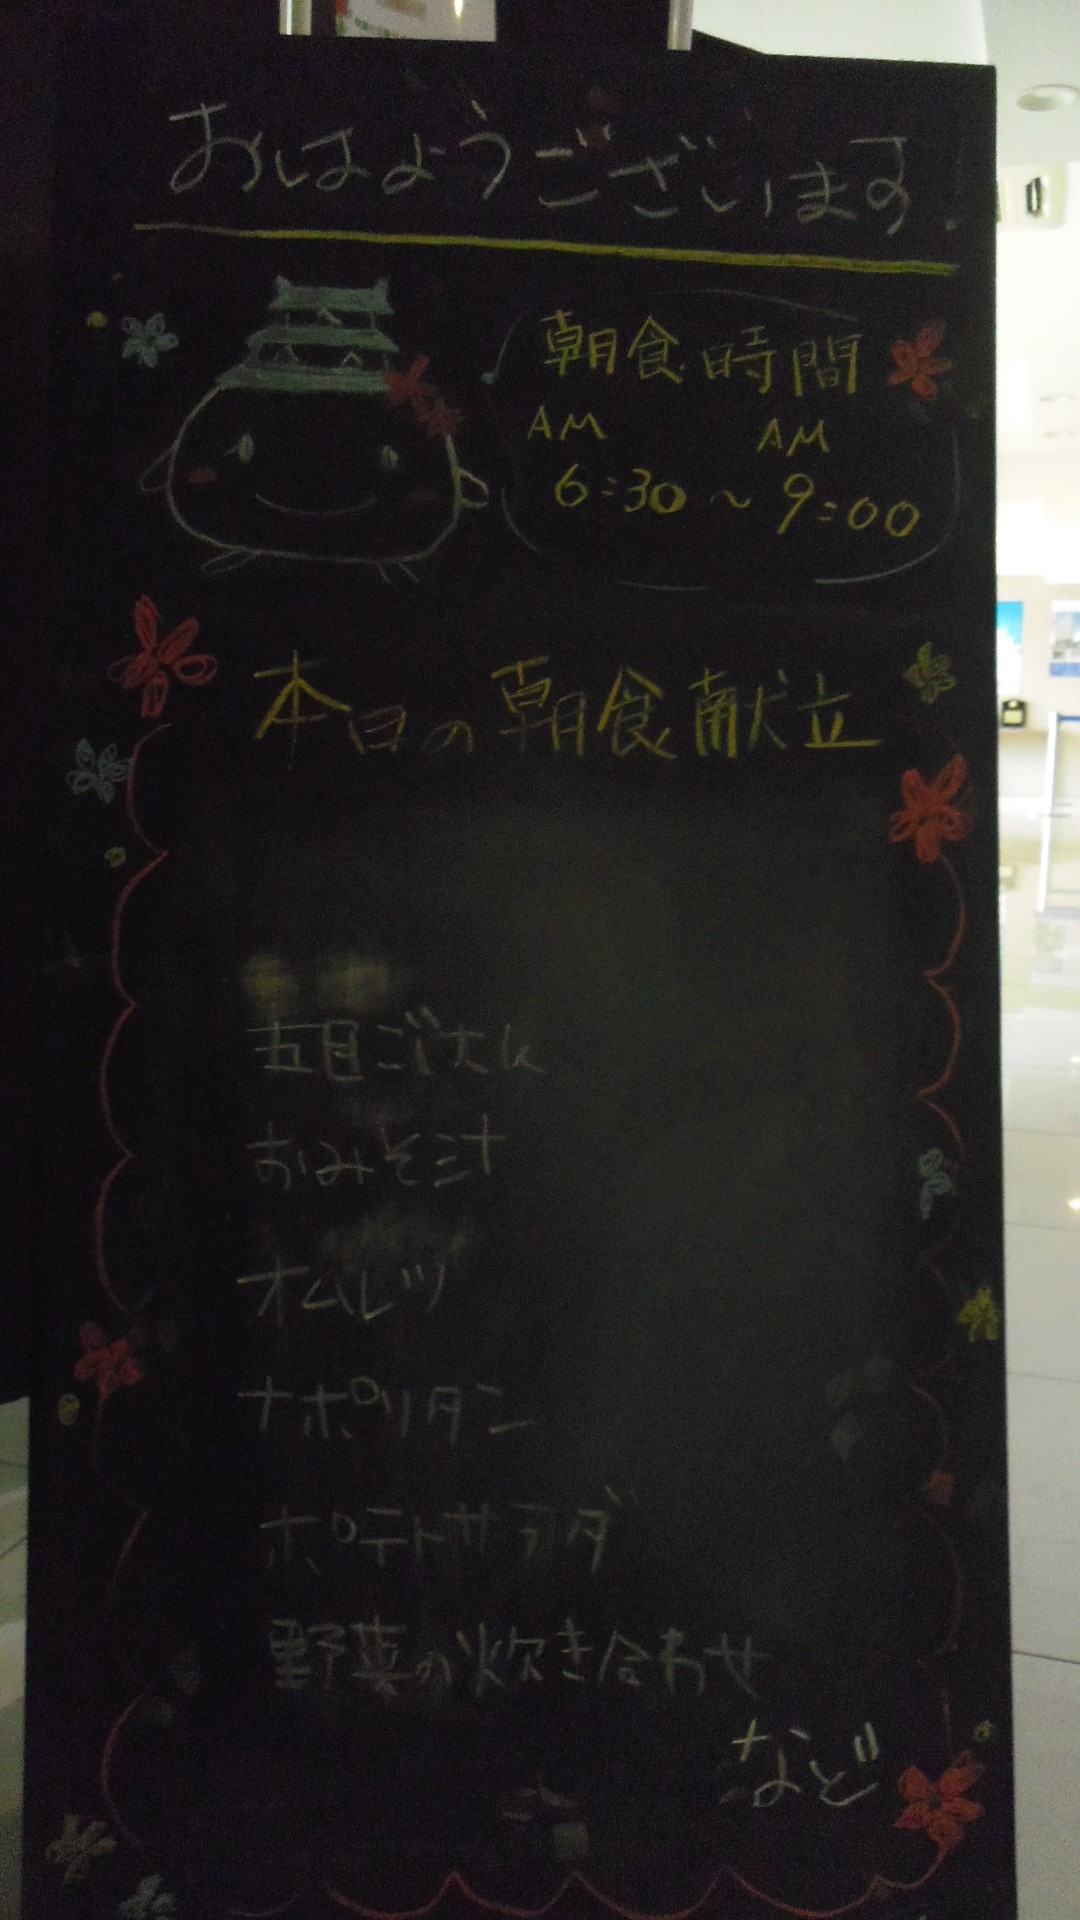 おはようございます
朝食時間
AM AM
6:30～9:00
本日の朝食献立
五目ごはん
おみそ汁
オムレツ
ナポリタン
ポテトサラダ
野菜の炊き合わせ
など